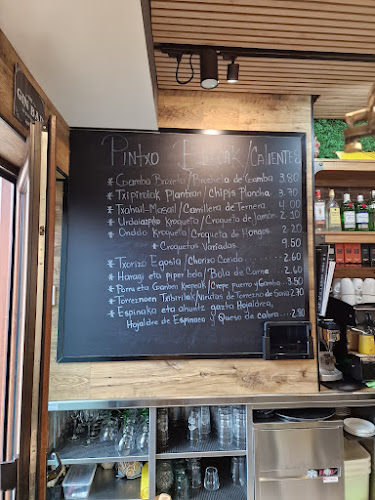 PINTXO BEROAK/CALIENTES
* Ganba Broxeta/Brocheta de Gamba 3.80
* Txipiroiak Plantxan/Chipis Plancha 3.70
* Txahal-Masail/Carrillera de Ternera 4.00
Kroketa/Croqueta de Jamón 2.10
* Onddo Kroketa/Croqueta de Hongos 2.20
* Croquetas Variadas 9.50
* Txorizo Egosia/Chorizo Cocido 2.60
* Haragi eta piper bola/Bola de Carne 2.60
* Porru eta Ganben Krepeak/Crepe puerro y Gamba 3.50
* Torreznoen Txibirilak/Virutas de Torrezno de Soria 2.70
* Espinaka eta ahuntz gazta Hojaldrea,
Hojaldre de Espinaca y Queso de cabra 2.80